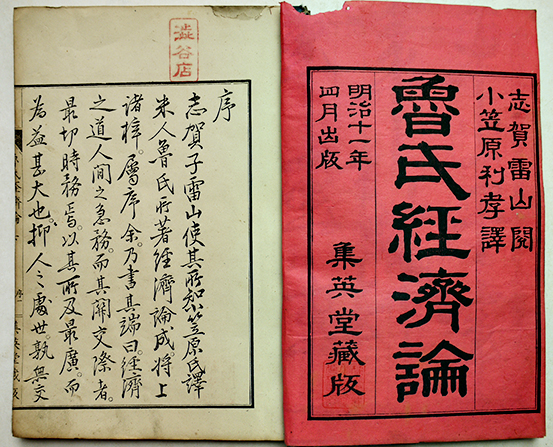 志賀雷山閲
小笠原利孝譯
魯氏経濟論
明治十一年
四月出版
集英堂藏版
澁谷店
序
志賀子雷山使其所知笠原氏譯
米人魯氏所著經濟論成。將上
諸梓。屬序余。乃書其端曰。經濟
之道人間之急務。而其關交際者。
最切時務焉。以其所及最廣。而
為益甚大也。抑人々處世。孰無交